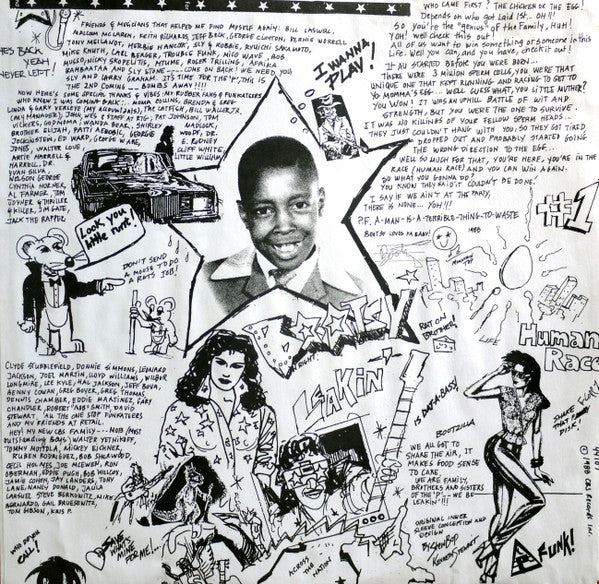 FRIENDS & MUSICIANS THAT HELPED ME FIND MYSELF AGAIN: BILL LASWELL,
MALCOLM McLAREN, KEITH RICHARDS, JEFF BECK, GEORGE CLINTON, BERNIE WORRELL
TONY MELGAVDT, HERBIE HANCOCK, SLY & ROBBIE, RYUICHI SAKAMOTO,
MIKE KNUTH, CARL BERGER, TROUBLE FUNK, NICO WAVE, BOB
MUSSO, NICKY SKOPELITIS, MTUME, ROGER TRILLING, AFRIKA
BAMBAATAA AND SLY STONE---COME ON BACK! WE NEED YOU
SLY AND LARRY GRAHAM. IT'S TIME FOR THE "P", THIS IS
THE 2ND COMING -- BOMBS AWAY!!!!
HE'S BACK
YEAH
NEVER LEFT!
NOW HERE'S SOME SPECIAL THANX & VIBES: MY RUBBER FANS & FUNKATEERS
WHO KNEW I WAS COMIN' BACK. MAMA COLLINS, BRENDA & GREG
LYNDA & GARY VERKETE (MY BACKBONES), THE CATFISH, BILL WALLER JR.
(MY MANAGER), JOHN, WES & STAFF AT RSI, PAT JOHNSON, TOM
VICKERS, GOPNOMA, WONDA BEAR, SHIRLEY
BROTHER ELIJAH, PATTI AEROBIC, GEORGE
JACKIN STON, ED WARD, GEORGE WARE,
JONES, WALTER LOVE,
ARTIE MORRELL &
HARRELL, DR.
YVAN SILVA,
NELSON GEORGE
CYNTHIA HORNER,
AL FARMER, TOM
JOYNER & THRILLER
& KILLER, JM GATE,
JACK THE RAPPER
WOOPS, DR.
E. RODNEY
CLIFF WHITE
LITTLE WILLIAM
I WANNA
PLAY!
WHO CAME FIRST? THE CHICKEN OR THE EGG!
DEPENDS ON WHO GOT LAID 1ST. OH!!!
SO YOU'RE THE "GENIUS" OF THE FAMILY, HUH!
YOH! WELL CHECK THIS OUT
ALL OF US WANT TO WIN SOMETHING OR SOMEONE IN THIS
LIFE. WELL YOU CAN, AND YOU HAVE, CHECK IT OUT!
IT ALL STARTED BEFORE YOU WERE BORN...
THERE WERE 3 MILLION SPERM CELLS, YOU WERE THAT
UNIQUE ONE THAT KEPT RUNNING AND RACING TO GET TO
YO MOMMA'S EGG... WELL GUESS WHAT, YOU LITTLE MUTHER?
YOU WON! IT WAS AN UPHILL BATTLE OF WIT AND
STRENGTH, BUT YOU WERE THE ONE TO SURVIVE.
IT WAS NO KILLING OF YOUR FELLOW SPERM HEADS...
THEY JUST COULDN'T HANG WITH YOU; SO THEY GOT TIRED,
DROPPED OUT AND PROBABLY STARTED GOING
THE WRONG DIRECTION TO THE EGG...
WELL SO MUCH FOR THAT, YOU'RE HERE, YOU'RE IN THE
RACE (HUMAN RACE) AND YOU CAN WIN AGAIN.
SO WHAT YOU GONNA DO?
YOU KNOW THEY SAID IT COULDN'T BE DONE!
I SAY IF WE AIN'T AT THE PARTY,
THERE IS NONE... YOH!!!
P.F. A-MAN-IS-A-TERRIBLE-THING-TO-WASTE
BOOTSY LOVES YA BABY!
1988
#1
Look you
Little Punk!
DON'T SEND
A MOUSE TO DO
A RATS JOB!
BOOTSY
RAT ON
BROTHER!
LIFE
Human
Race
CLYDE STUBBLEFIELD, DONNIE SIMMONS, LENIARD
JACKSON, JOEL MARTIN, LLOYD WILLIAMS, WILBUR
LONGMIRE, LEE KYLE, HAL JACKSON, JEFF BOVA,
BENNY COWAN, GREG BOYER, GREG THOMAS,
DENNIS CHAMBER, EDDIE MARTINEZ, GARY
CHANDLER, ROBERT "ABS" SMITH, DAVID
STEWART, ALL THE ONE STOP FUNKATEERS
AND MY FRIENDS AT RETAIL.
HEY! MY NEW CBS FAMILY---MOB (MOST
OUTSTANDING BOYS) WALTER YETNIKOFF,
TOMMY MOTTOLA, MICKEY EICHNER,
RUBEN RODRIGUEZ, BOB SHERWOOD,
CECIL HOLMES, JOE McEWEN, RON
OBERMAN, EDDIE PUGH, BOB WILCOX,
JAMIE COHEN, JAY LANDERS, TONY
LANE, NANCY DONALD,
LARGUEL, STEVE BERKOWITZ, MIKE
BERNARDO, GAIL BRUESEWITZ,
TOM GIBSON, KRIS P.
LEAKIN'
IS DATA-BASS!
BOOTZILLA
WE ALL GOT TO
SHARE THE AIR, IT
MAKES GOOD SENSE
TO CARE.
WE ARE FAMILY,
BROTHERS AND SISTERS
OF THE "P"-- WE BE
LEAKIN'!!!
SHAKE
THAT FUNKY
DISK!
ORIGINAL INNER
SLEEVE CONCEPTION AND
DESIGN
BY
WHO DOWN
CALL!
SAVE
WHAT'S
MINE FOR ME!...
ACROSS
THE NATION
P FUNK!
© 1988 CBS RECORDS INC.